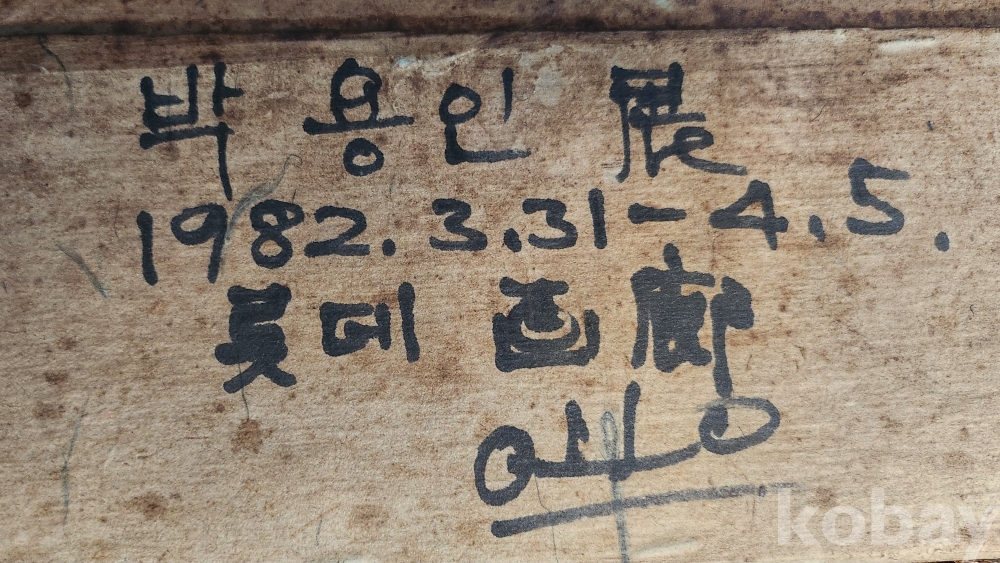 박 용 인 展
1982. 3.31-4.5.
롯데 画廊
kobay